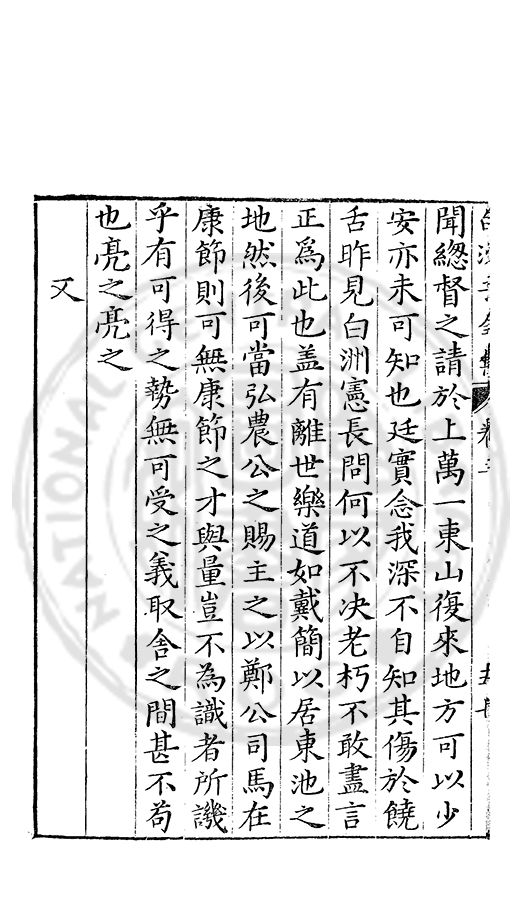 聞總督之請於上萬一東山復來地方可以少
安亦未可知也廷實念我深不自知其傷於饒
舌昨見白洲憲長問何以不决老朽不敢盡言
正為此也盖有離世樂道如戴簡以居東池之
地然後可當弘農公之賜主之以鄭公司馬在
康節則可無康節之才與量豈不為識者所譏
乎有可得之勢無可受之義取舍之間甚不苟
也亮之亮之
又
NATIONAL